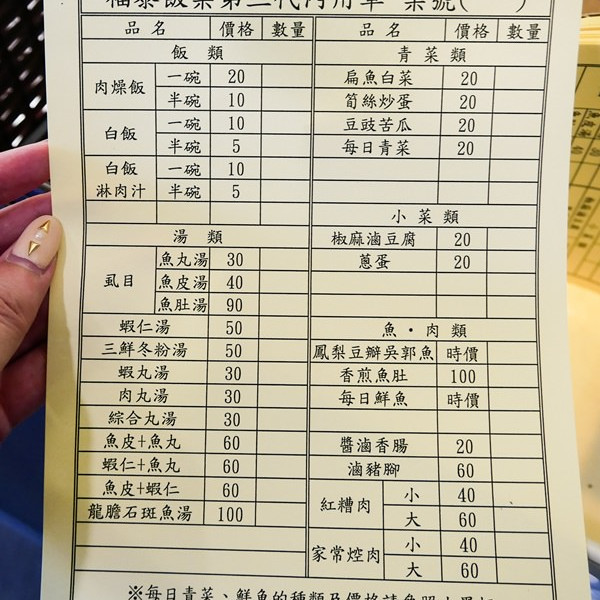 福泰飯桌第三代內用單 桌號( )
品名 價格 數量
飯類
肉燥飯 一碗 20
半碗 10
白飯 一碗 10
半碗 5
白飯淋肉汁 一碗 10
半碗 5
湯類
虱目 魚丸湯 30
魚皮湯 40
魚肚湯 90
蝦仁湯 50
三鮮冬粉湯 50
蝦丸湯 30
肉丸湯 30
綜合丸湯 30
魚皮+魚丸 60
蝦仁+魚丸 60
魚皮+蝦仁 60
龍膽石斑魚湯 100
品名 價格 數量
青菜類
扁魚白菜 20
筍絲炒蛋 20
豆豉苦瓜 20
每日青菜 20
小菜類
椒麻滷豆腐 20
蔥蛋 20
魚·肉類
鳳梨豆瓣吳郭魚 時價
香煎魚肚 100
每日鮮魚 時價
醬滷香腸 20
滷豬腳 60
紅糟肉 小 40
大 60
家常焢肉 小 40
大 60
※每日青菜、鮮魚的種類及價格請